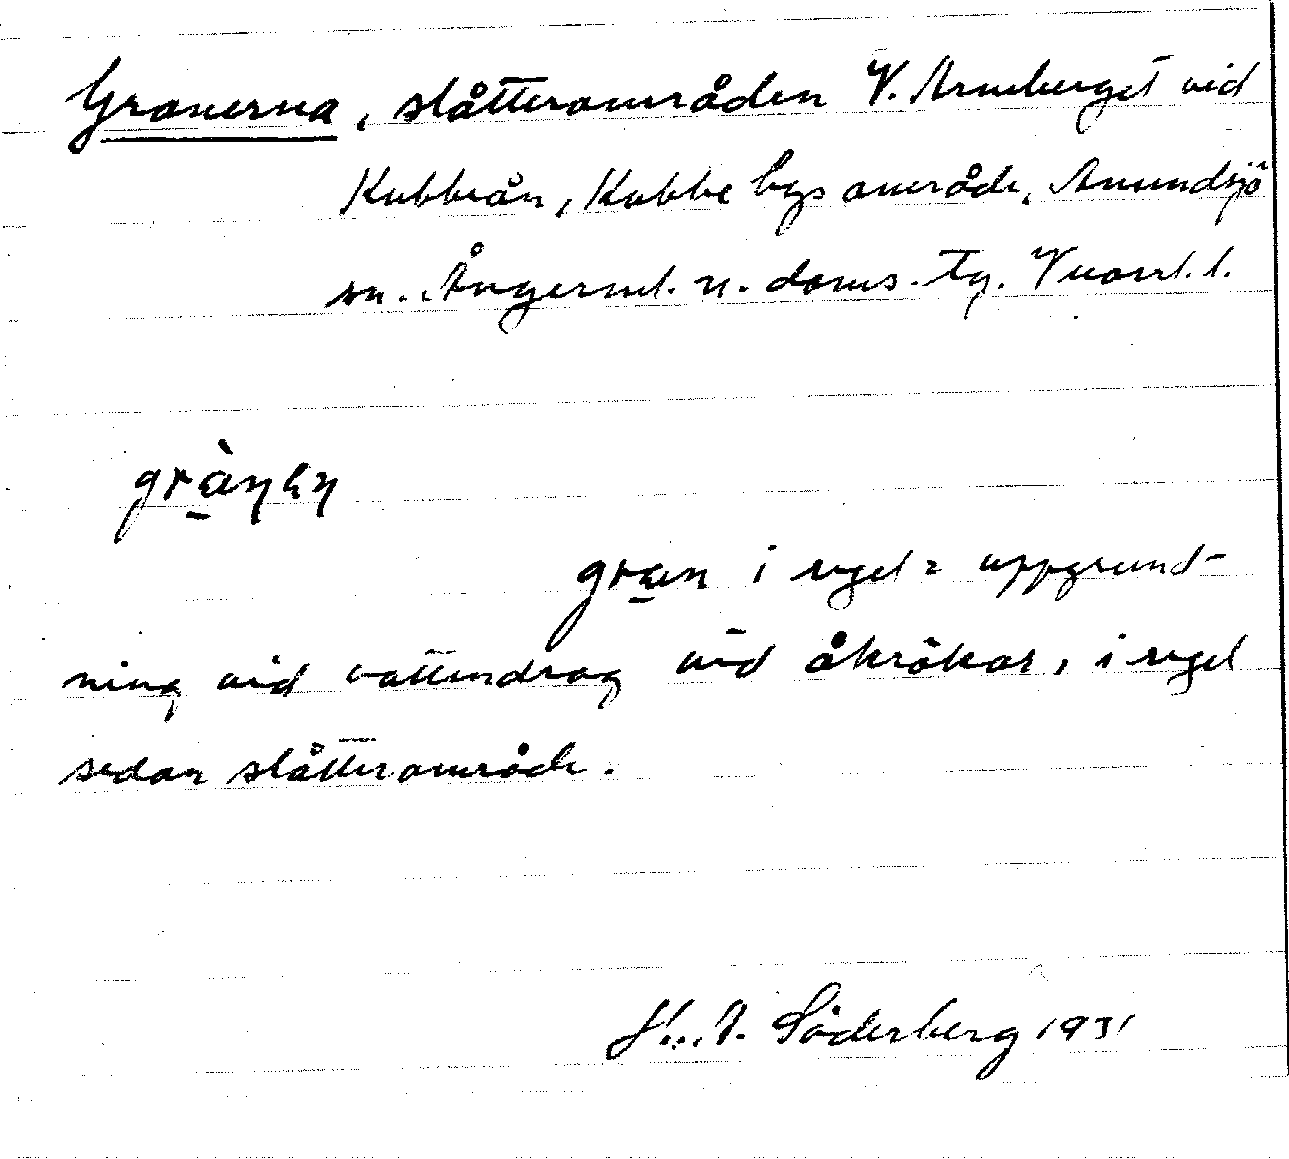 Granerna, slåtterområden V. Armberget vid
Kubbeån, Kubbe bys område, Anundsjö
sn. Ångerml. n. doms. tg. Vnorrl. l.
gràṇəṇ
gran i regel = uppgrund-
ning vid vattendrag vid åkrökar, i regel
sedan slåtterområde.
Söderberg 1931